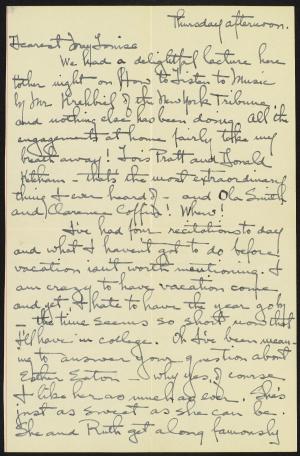 Thursday afternoon.
Dearest Fay Louise
We had a delightful lecture here
tother night on How to Listen to Music
by Mr. Krehbiel of the New York Tribune,
and nothing else has been doing. All the
engagements at home fairly take my
breath away! Lois Pratt and Donald
Ketcham - that's the most extraordinary
thing I ever heard of - and Ola Smith
and Clarence Coffin! Whew!
I've had four recitations to day
and what I haven't got to do before
vacation isn't worth mentioning. I
am crazy to have vacation come
and yet I hate to have the year go by
- the time seems so short now that
I'll have in college. Oh I've been mean-
ing to answer your question about
Esther Eaton - why yes, of course
I like her as much as ever. She's
just as sweet as she can be.
She and Ruth get along famously